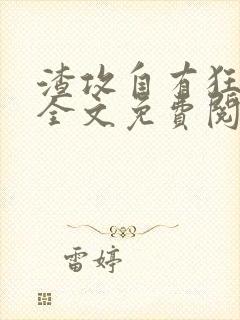 渣攻自有狂
全文免費閱
雷婷